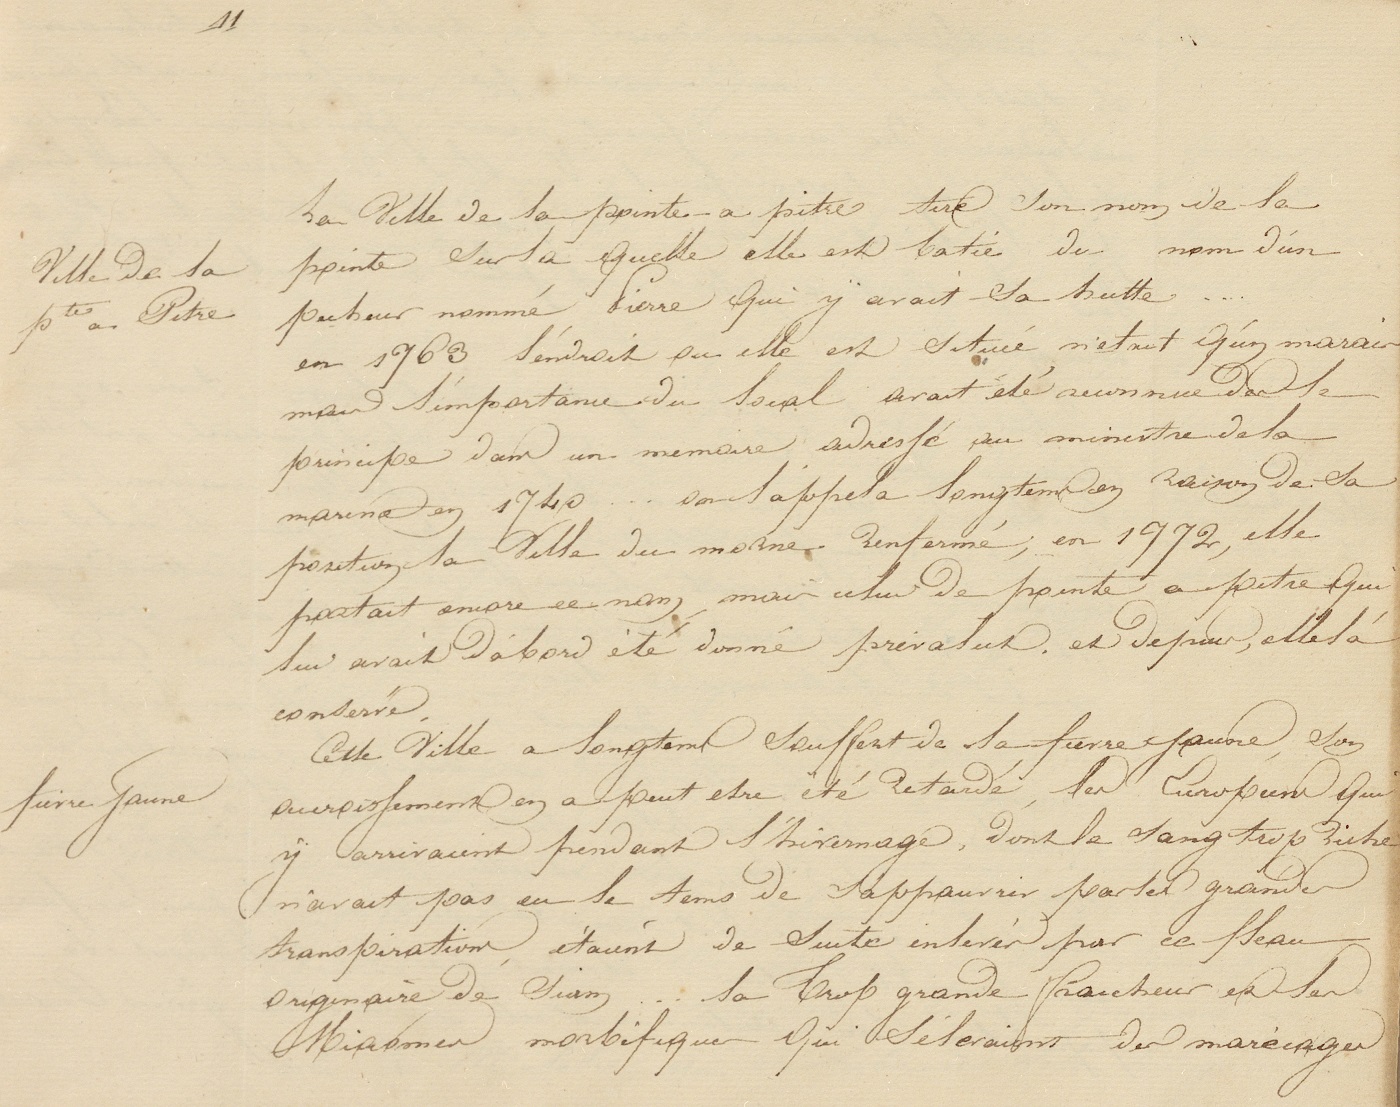 11
La Ville de la pointe a pitre tire son nom de la
Ville De la
pointe sur la quelle elle est batie du nom d'un
pte a Pitre
pecheur nommé Pierre qui ÿ avait sa hutte ...
en 1763 l'éndroit ou elle est située n'etait qu'un marais
mais l'importance du local avait été reconnue dès le
principe dans un memoire adressé au ministre de la
marine en 1740 ... on l'appela longtems en raison de sa
position la Ville du morne renfermé, en 1772, elle
portait encore ce nom, mais celui de pointe a pitre qui
lui avait d'abord été donné prévalut. et depuis, elle l'a
conservé.
Cette Ville a longtems souffert de la fievre jaune, son
fievre jaune
accroissement en a peut etre été retardé, les Européens qui
ÿ arrivaient pendant l'hivernage, dont le sang trop riche
n'avait pas eu le tems de s'appauvrir par les grandes
transpirations, étaient de suite enlevés par ce fleau
originaire de Siam ... la trop grande fraicheur et les
Miasmes morbifiques qui s'élevaient des marécages